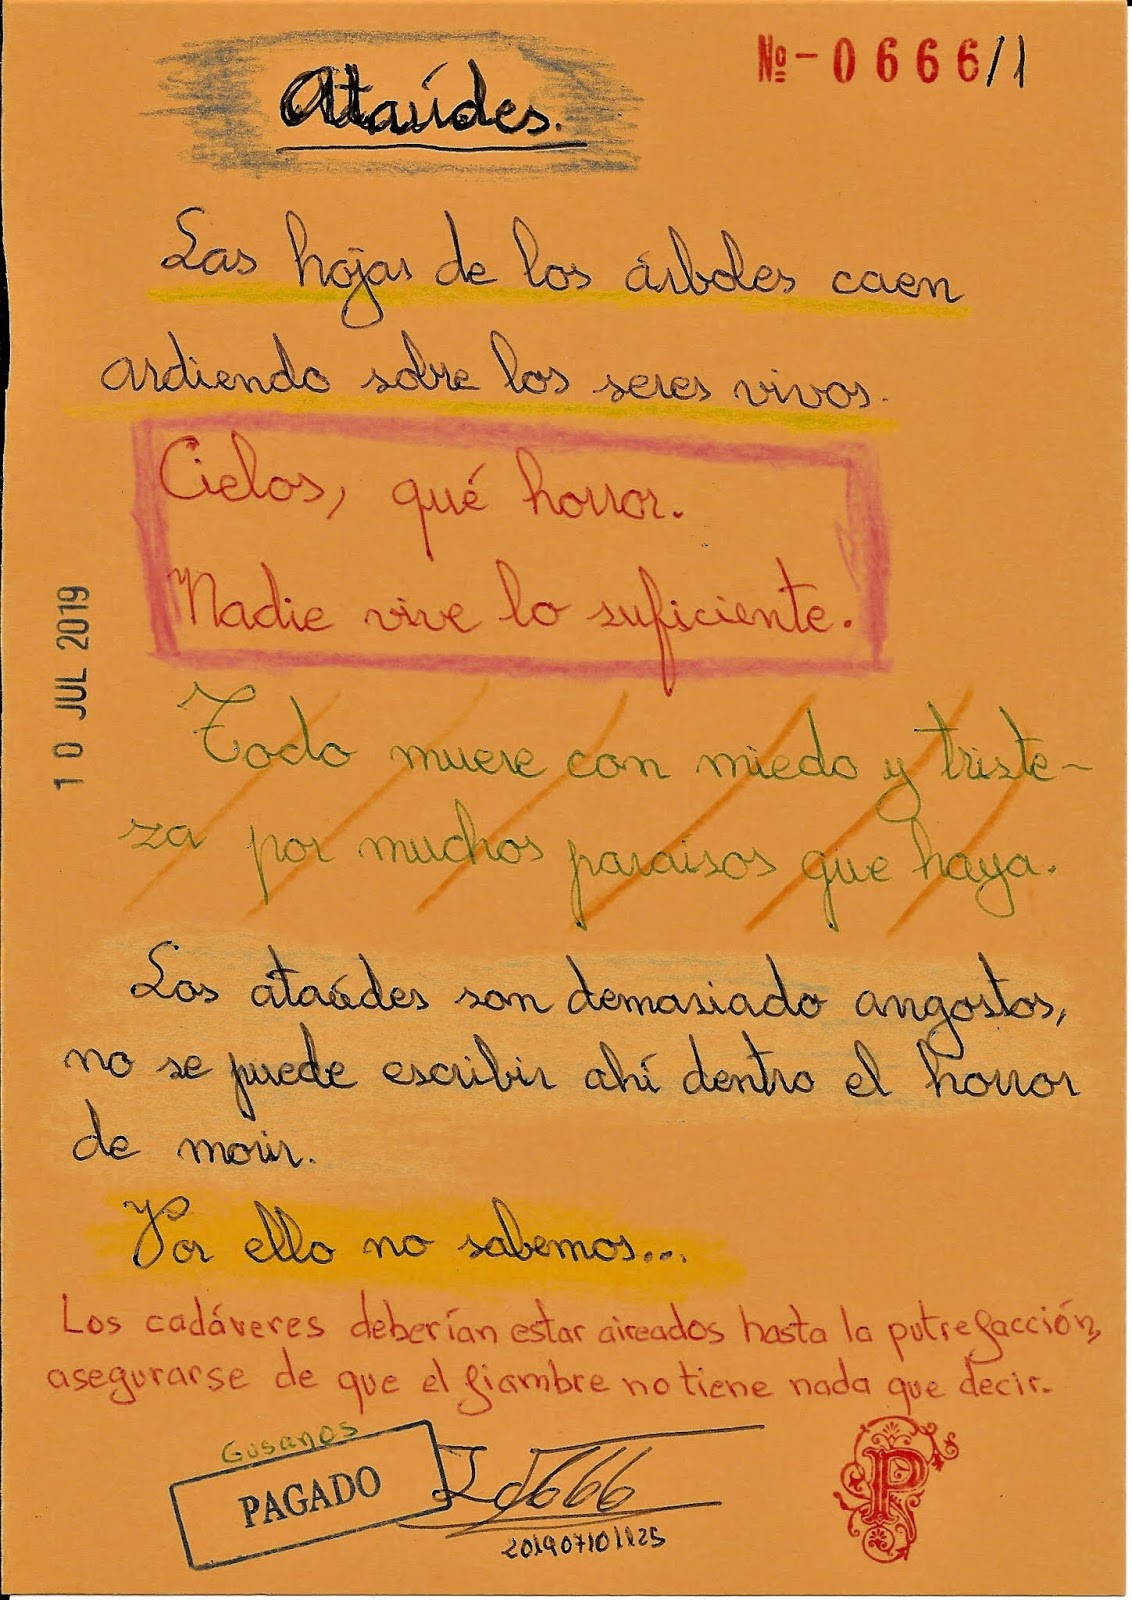 Nº-0666/1
Ataúdes.
Las hojas de los árboles caen
ardiendo sobre los seres vivos.
Cielos, qué horror.
Nadie vive lo suficiente.
10 JUL 2019
Todo muere con miedo y triste-
za por muchos paraísos que haya.
Los ataúdes son demasiado angostos,
no se puede escribir ahí dentro el horror
de morir.
Por ello no sabemos...
Los cadáveres deberían estar aireados hasta la putrefacción,
asegurarse de que el fiambre no tiene nada que decir.
Gusanos
PAGADO
201907101125
P